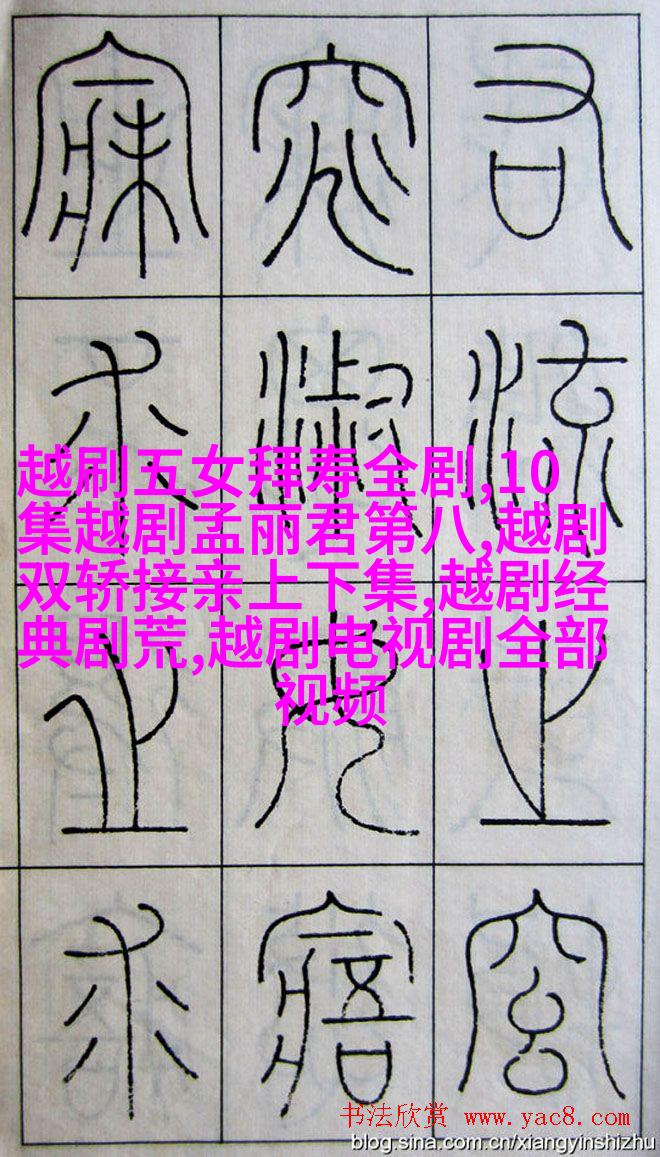 右流之窈
窕淑女寤
寐求之求
越刷五女拜寿全剧,10
集越剧孟丽君第八,越剧
双轿接亲上下集,越剧经
典剧荒,越剧电视剧全部
视频
书法欣赏 www.yac8.com
blog.sina.com.cn/xiangyinshizhu